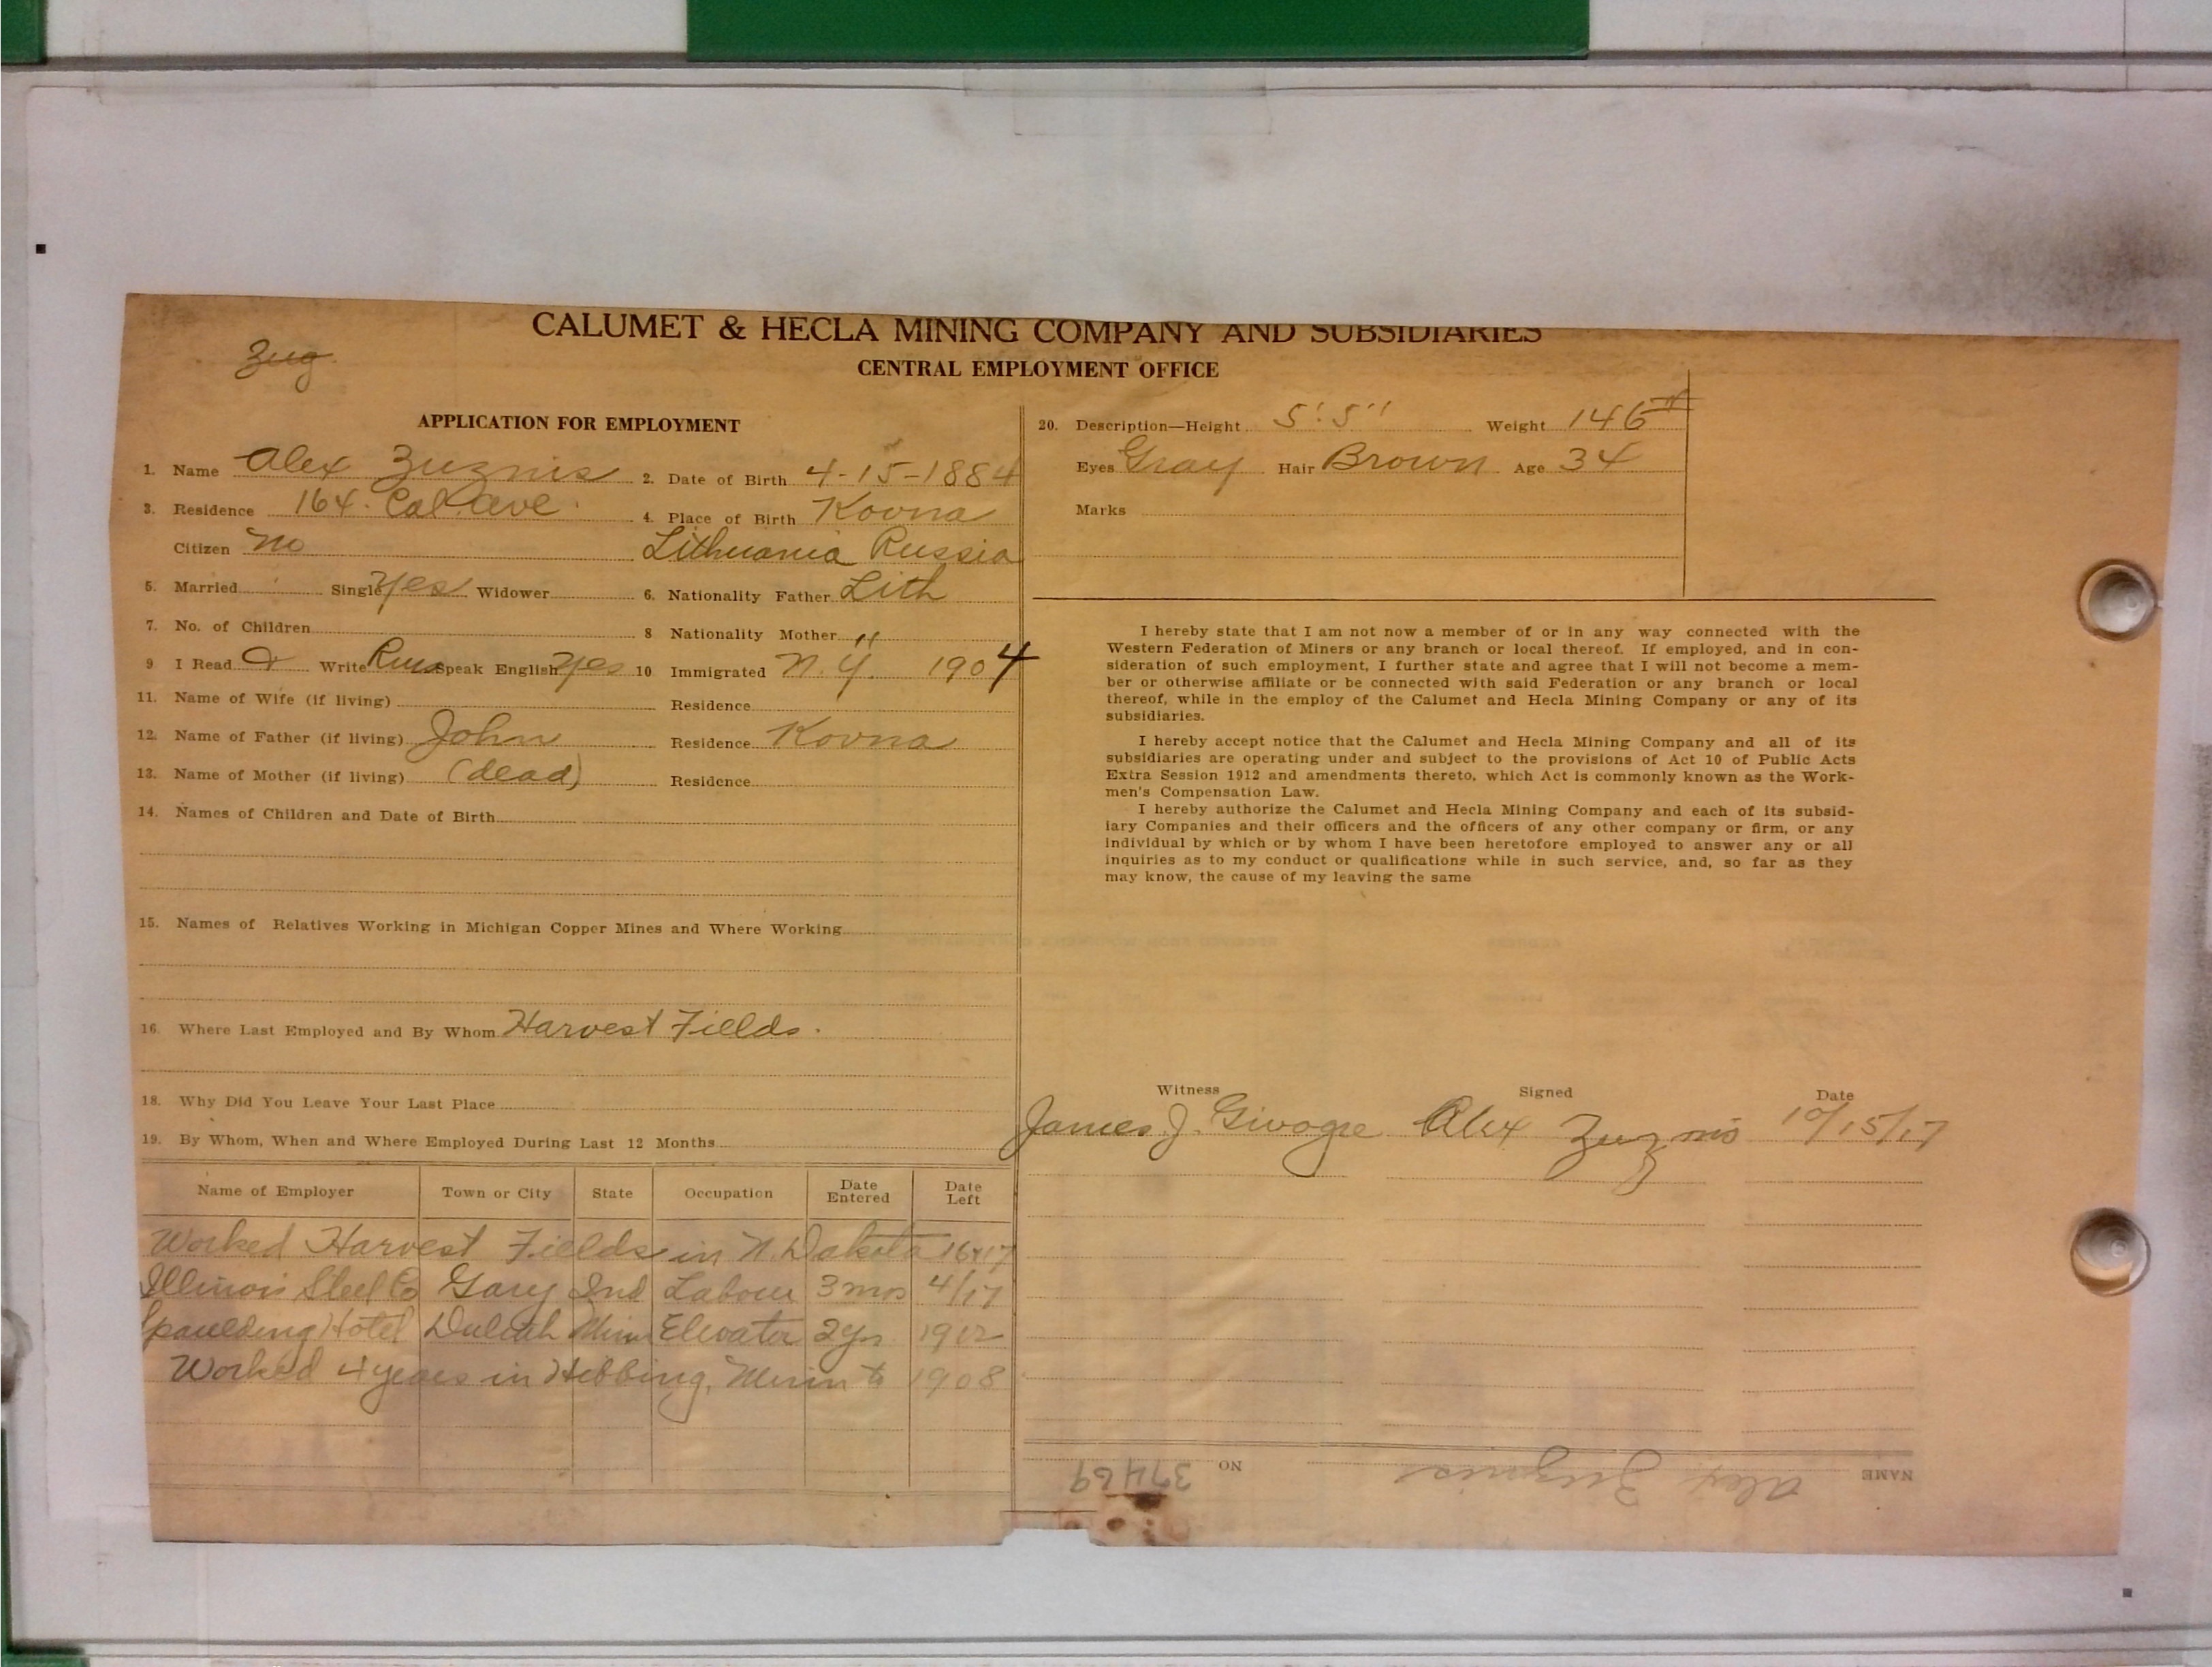 CALUMET & HECLA MINING COMPANY AND SUBSIDIARIES
CENTRAL EMPLOYMENT OFFICE
Zug
APPLICATION FOR EMPLOYMENT
1. Name Alex Zuznis 2. Date of Birth 4-15-1884
3. Residence 164. Cal. ave. 4. Place of Birth Kovna
Citizen no Lithuania Russia
5. Married Single yes Widower 6. Nationality Father Lith
7. No. of Children 8 Nationality Mother "
9 I Read & Write Russ Speak English yes 10 Immigrated N.Y. 1904
11. Name of Wife (if living) Residence
12. Name of Father (if living) John Residence Kovna
13. Name of Mother (if living) (dead) Residence
14. Names of Children and Date of Birth
15. Names of Relatives Working in Michigan Copper Mines and Where Working
16. Where Last Employed and By Whom Harvest Fields.
18. Why Did You Leave Your Last Place
19. By Whom, When and Where Employed During Last 12 Months
Name of Employer Town or City State Occupation Date Entered Date Left
Worked Harvest Fields in N. Dakota 16+17
Illinois Steel Co Gary Ind Labour 3 mos 4/17
Spaulding Hotel Duluth Minn Elevator 2 yrs 1912
Worked 4 years in Hibbing, Minn to 1908
20. Description—Height 5' 5" Weight 146 #
Eyes Gray Hair Brown Age 34
Marks
I hereby state that I am not now a member of or in any way connected with the
Western Federation of Miners or any branch or local thereof. If employed, and in con-
sideration of such employment, I further state and agree that I will not become a mem-
ber or otherwise affiliate or be connected with said Federation or any branch or local
thereof, while in the employ of the Calumet and Hecla Mining Company or any of its
subsidiaries.
I hereby accept notice that the Calumet and Hecla Mining Company and all of its
subsidiaries are operating under and subject to the provisions of Act 10 of Public Acts
Extra Session 1912 and amendments thereto, which Act is commonly known as the Work-
men's Compensation Law.
I hereby authorize the Calumet and Hecla Mining Company and each of its subsid-
iary Companies and their officers and the officers of any other company or firm, or any
individual by which or by whom I have been heretofore employed to answer any or all
inquiries as to my conduct or qualifications while in such service, and, so far as they
may know, the cause of my leaving the same
Witness Signed Date
James J. Alex Zuznis 10/15/17
NAME Alex Zuznis NO 37469